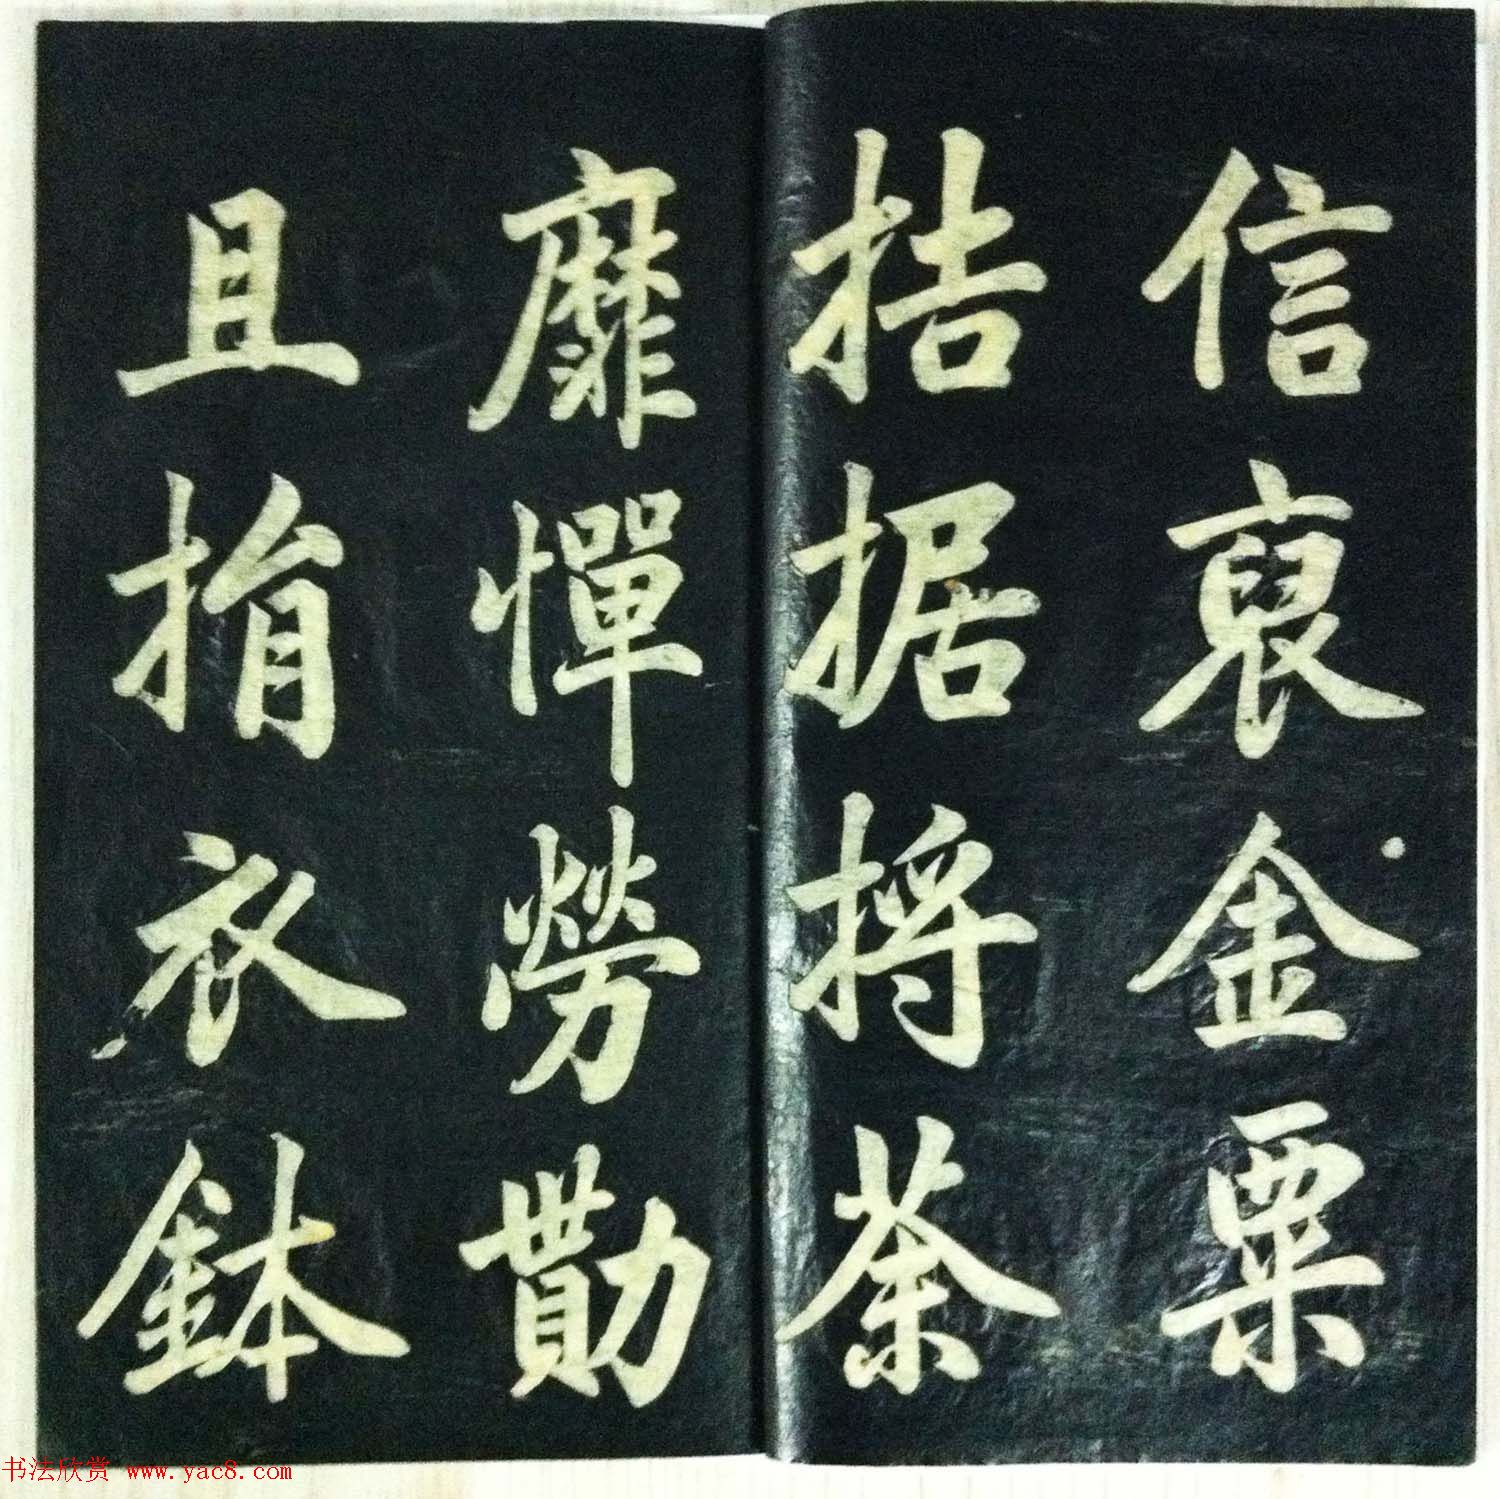 信裒金粟
拮据捋荼
靡憚勞勩
且捐衣鉢
书法欣赏 www.yac8.com